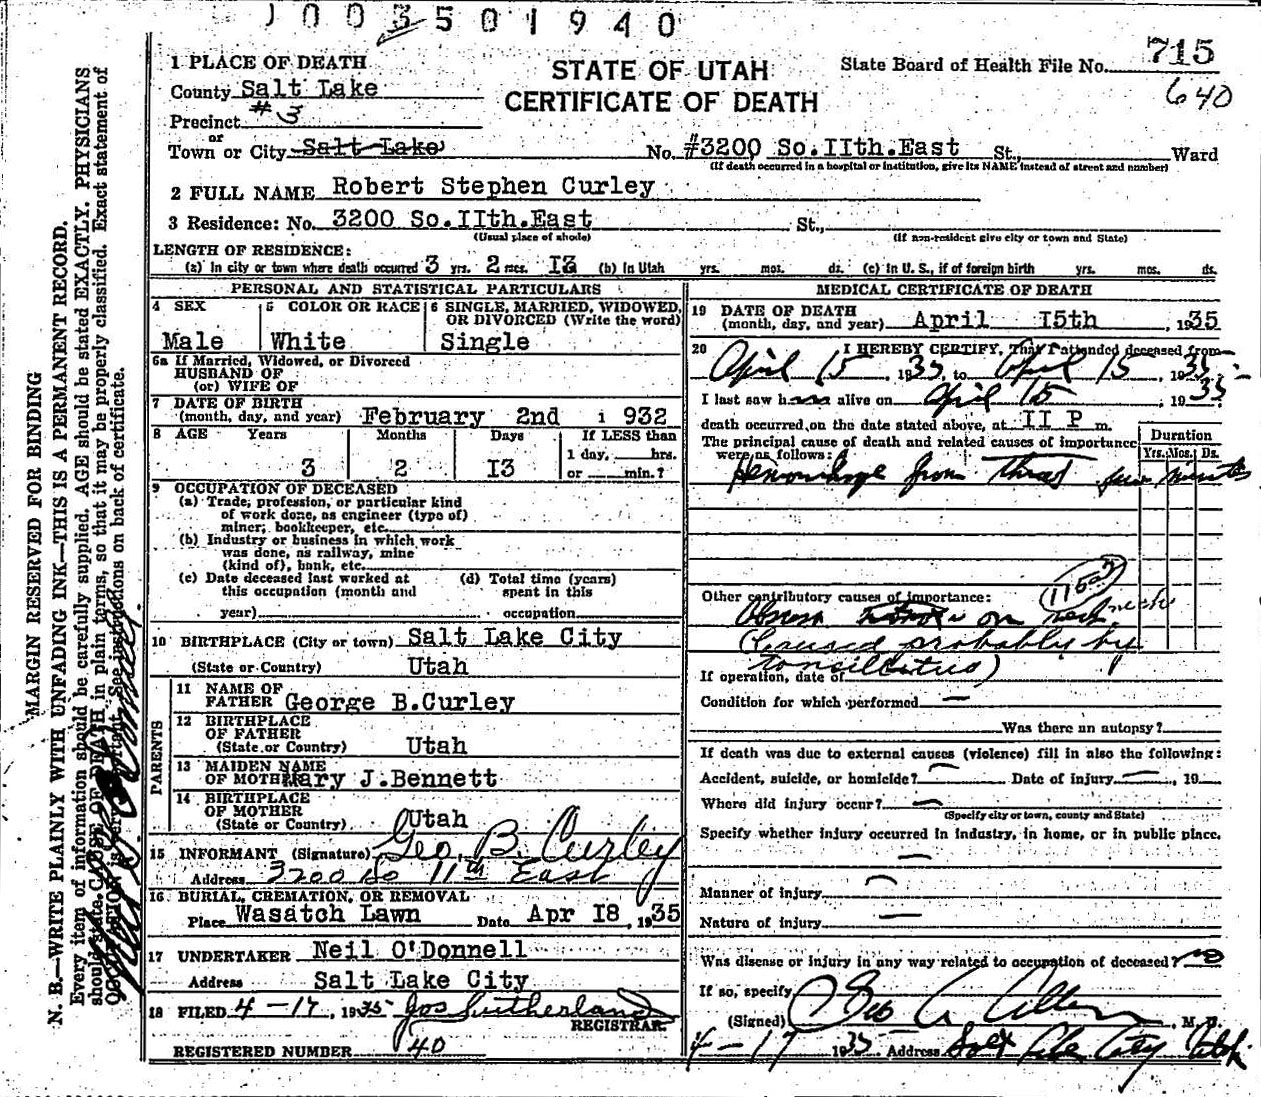 1003501940
715
640
STATE OF UTAH
CERTIFICATE OF DEATH
State Board of Health File No.
1 PLACE OF DEATH
County Salt Lake
Precinct #3
or
Town or City Salt Lake No. #3200 So.IIth.East St., Ward
(If death occurred in a hospital or institution, give its NAME instead of street and number)
2 FULL NAME Robert Stephen Curley
3 Residence: No. 3200 So.IIth.East St.,
(Usual place of abode) (If non-resident give city or town and State)
LENGTH OF RESIDENCE:
(a) In city or town where death occurred 3 yrs. 2 mos. I3 (b) In Utah yrs. mos. ds. (c) In U. S., if of foreign birth yrs. mos. ds.
PERSONAL AND STATISTICAL PARTICULARS
4 SEX
Male
5 COLOR OR RACE
White
6 SINGLE, MARRIED, WIDOWED,
OR DIVORCED (Write the word)
Single
6a If Married, Widowed, or Divorced
HUSBAND OF
(or) WIFE OF
7 DATE OF BIRTH
(month, day, and year) February 2nd i 932
8 AGE Years Months Days If LESS than
1 day, hrs.
3 2 I3 or min.?
9 OCCUPATION OF DECEASED
(a) Trade, profession, or particular kind
of work done, as engineer (type of)
miner; bookkeeper, etc.
(b) Industry or business in which work
was done, as railway, mine
(kind of), bank, etc.
(c) Date deceased last worked at
this occupation (month and
year)
(d) Total time (years)
spent in this
occupation
10 BIRTHPLACE (City or town) Salt Lake City
(State or Country) Utah
PARENTS
11 NAME OF
FATHER George B.Curley
12 BIRTHPLACE
OF FATHER
(State or Country) Utah
13 MAIDEN NAME
OF MOTHER Mary J.Bennett
14 BIRTHPLACE
OF MOTHER
(State or Country) Utah
15 INFORMANT (Signature) Geo. B. Curley
Address 3200 So 11th East
16 BURIAL, CREMATION, OR REMOVAL
Place Wasatch Lawn Date Apr I8, 1935
17 UNDERTAKER Neil O'Donnell
Address Salt Lake City
18 FILED 4-17, 1935 Jos Sutherland
REGISTRAR
REGISTERED NUMBER 40
MEDICAL CERTIFICATE OF DEATH
19 DATE OF DEATH
(month, day, and year) April I5th, 1935
20 I HEREBY CERTIFY, That I attended deceased from
April 15, 1935, to April 15, 1935
I last saw h alive on April 15, 1935
death occurred, on the date stated above, at II P m.
The principal cause of death and related causes of importance
were as follows:
Duration
Yrs. Mos. Ds.
Hemorrhage from Throat few minutes
Other contributory causes of importance:
on neck
(Caused probably by
tonsillitus)
If operation, date of
Condition for which performed —
Was there an autopsy?
If death was due to external causes (violence) fill in also the following:
Accident, suicide, or homicide? — Date of injury —, 19
Where did injury occur? —
(Specify city or town, county and State)
Specify whether injury occurred in industry, in home, or in public place.
—
Manner of injury —
Nature of injury —
Was disease or injury in any way related to occupation of deceased? no
If so, specify
(Signed) Geo A Allen, M. D.
4-17 1935 Address Salt Lake City Utah
MARGIN RESERVED FOR BINDING
N. B.—WRITE PLAINLY WITH UNFADING INK—THIS IS A PERMANENT RECORD.
Every item of information should be carefully supplied. AGE should be stated EXACTLY. PHYSICIANS
should state CAUSE OF DEATH in plain terms, so that it may be properly classified. Exact statement of
OCCUPATION is very important. See instructions on back of certificate.